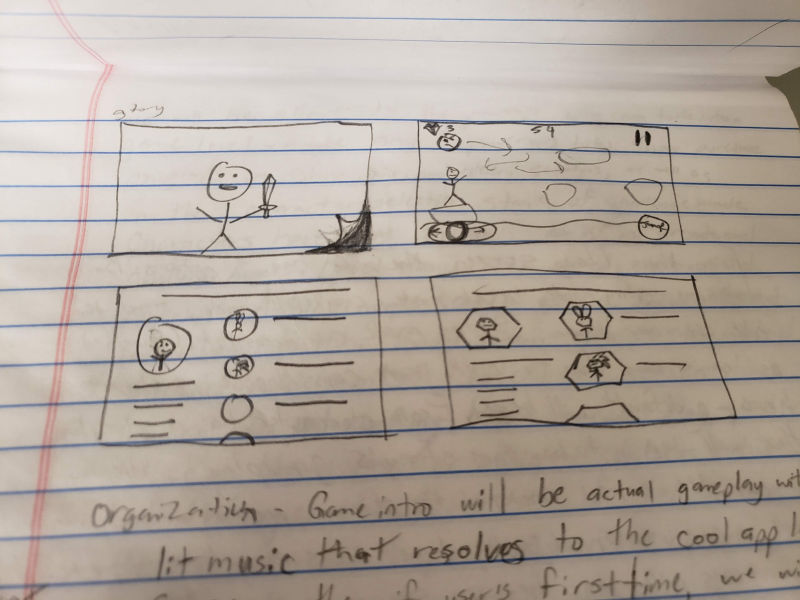 story
3
54
Organization - Game intro will be actual gameplay wit
lit music that resolves to the cool app l
if user's first time, we wi